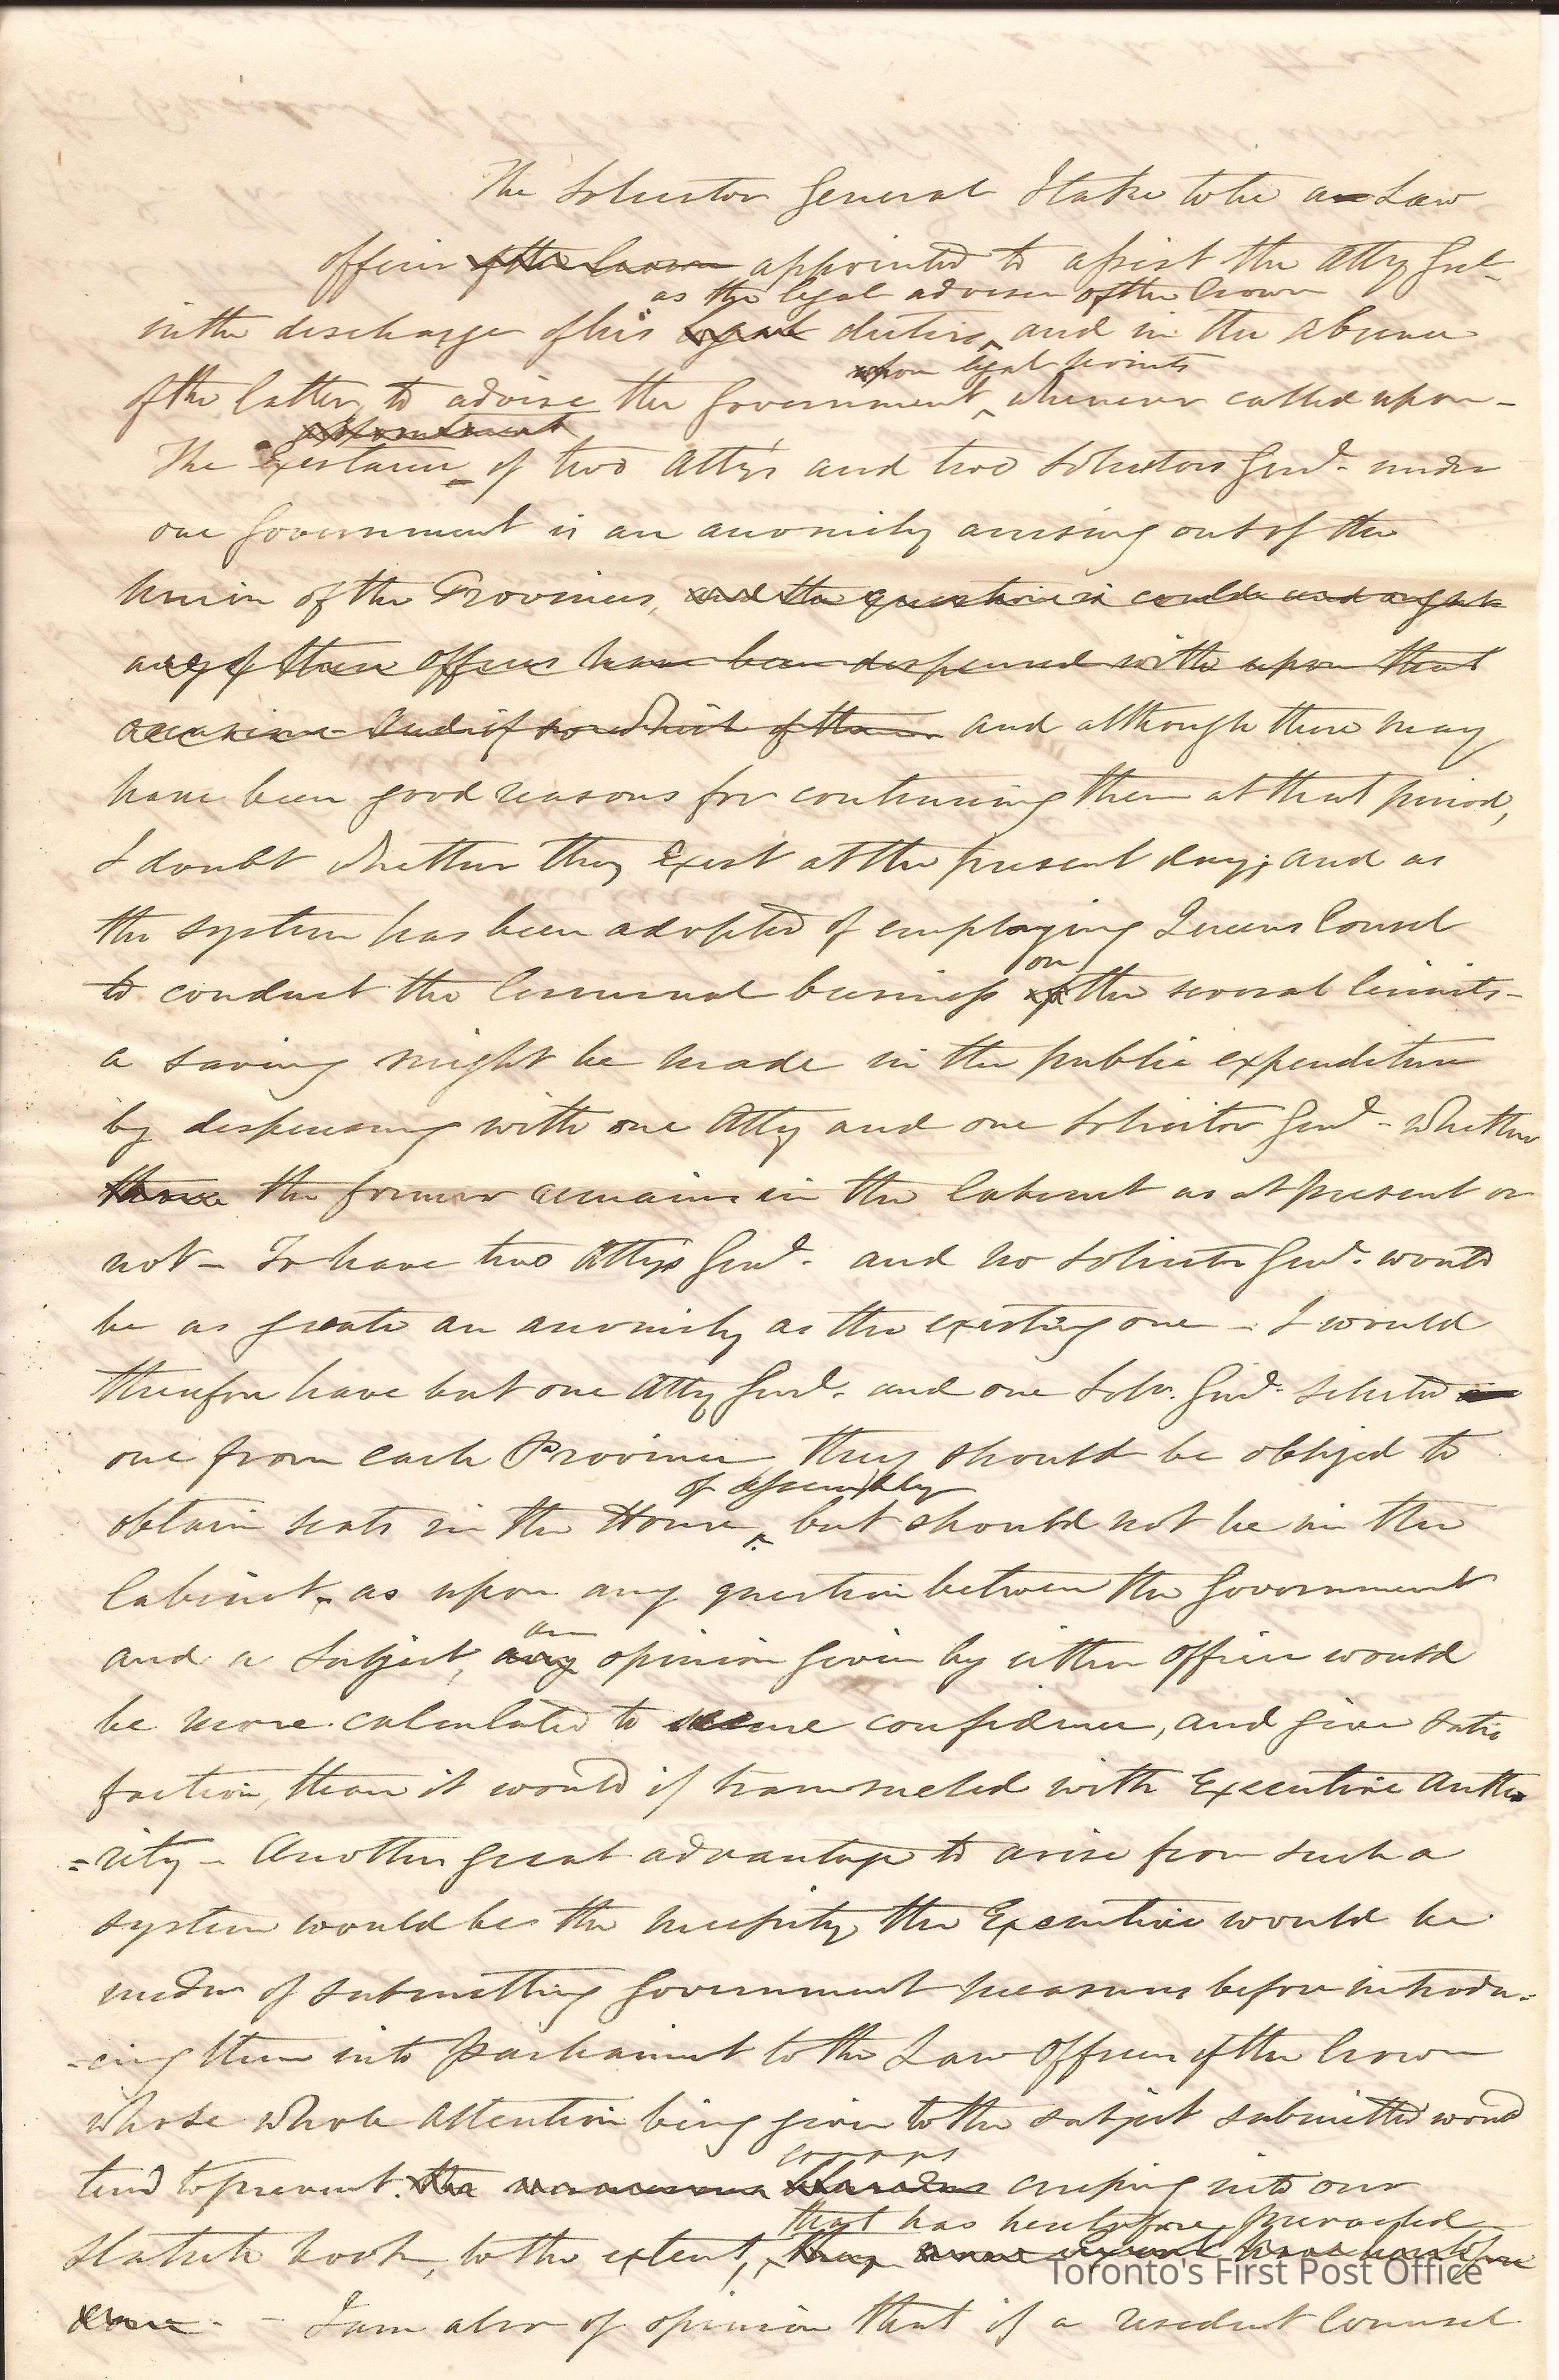 The Solicitor General I take to be a Law
officer of the Crown appointed to assist the Atty Genl
as the legal adviser of the Crown
in the discharge of his legal duties, and in the absence
upon legal points
of the latter, to advise the Government whenever called upon -
appointment
The Existence of two Atty's and two Solicitors Genl. under
one Government is an anomily arising out of the
Union of the Provinces, and the question is could and ought
any of these offices have been dispensed with upon that
occasion and if so which of them and although there may
have been good reasons for continuing them at that period,
I doubt whether they Exist at the present day; and as
the system has been adopted of employing Queens Counsel
on
to conduct the Criminal business of the several Circuits -
a saving might be made in the public expenditure
by dispensing with one Atty and one Solicitor Genl - whether
the former remains in the Cabinet as at present or
not - To have two Attys Genl. and no Solicitor Genl. would
be as greate an anomily as the existing one - I would
therefore have but one Atty Genl. and one Solr. Genl. Selected
one from each Province they should be obliged to
of Assembly
obtain seats in the House, but should not be in the
Cabinet, as upon any question between the Government
an
and a Subject, any opinion given by either officer would
be more calculated to secure confidence, and give Satis
faction, than it would if trammeled with Executive Autho
=rity - Another great advantage to arise from such a
system would be the necessity the Executive would be
under of submitting Government measures before introdu=
-cing them into Parliament to the Law Officers of the Crown
whose whole attention being given to the subject submitted would
errors
tend to prevent the numerous blunders creeping into our
that has heretofore prevailed
Statute book, to the extent, they have heretofore
done. - I am also of opinion that if a resident Counsel
Toronto's First Post Office